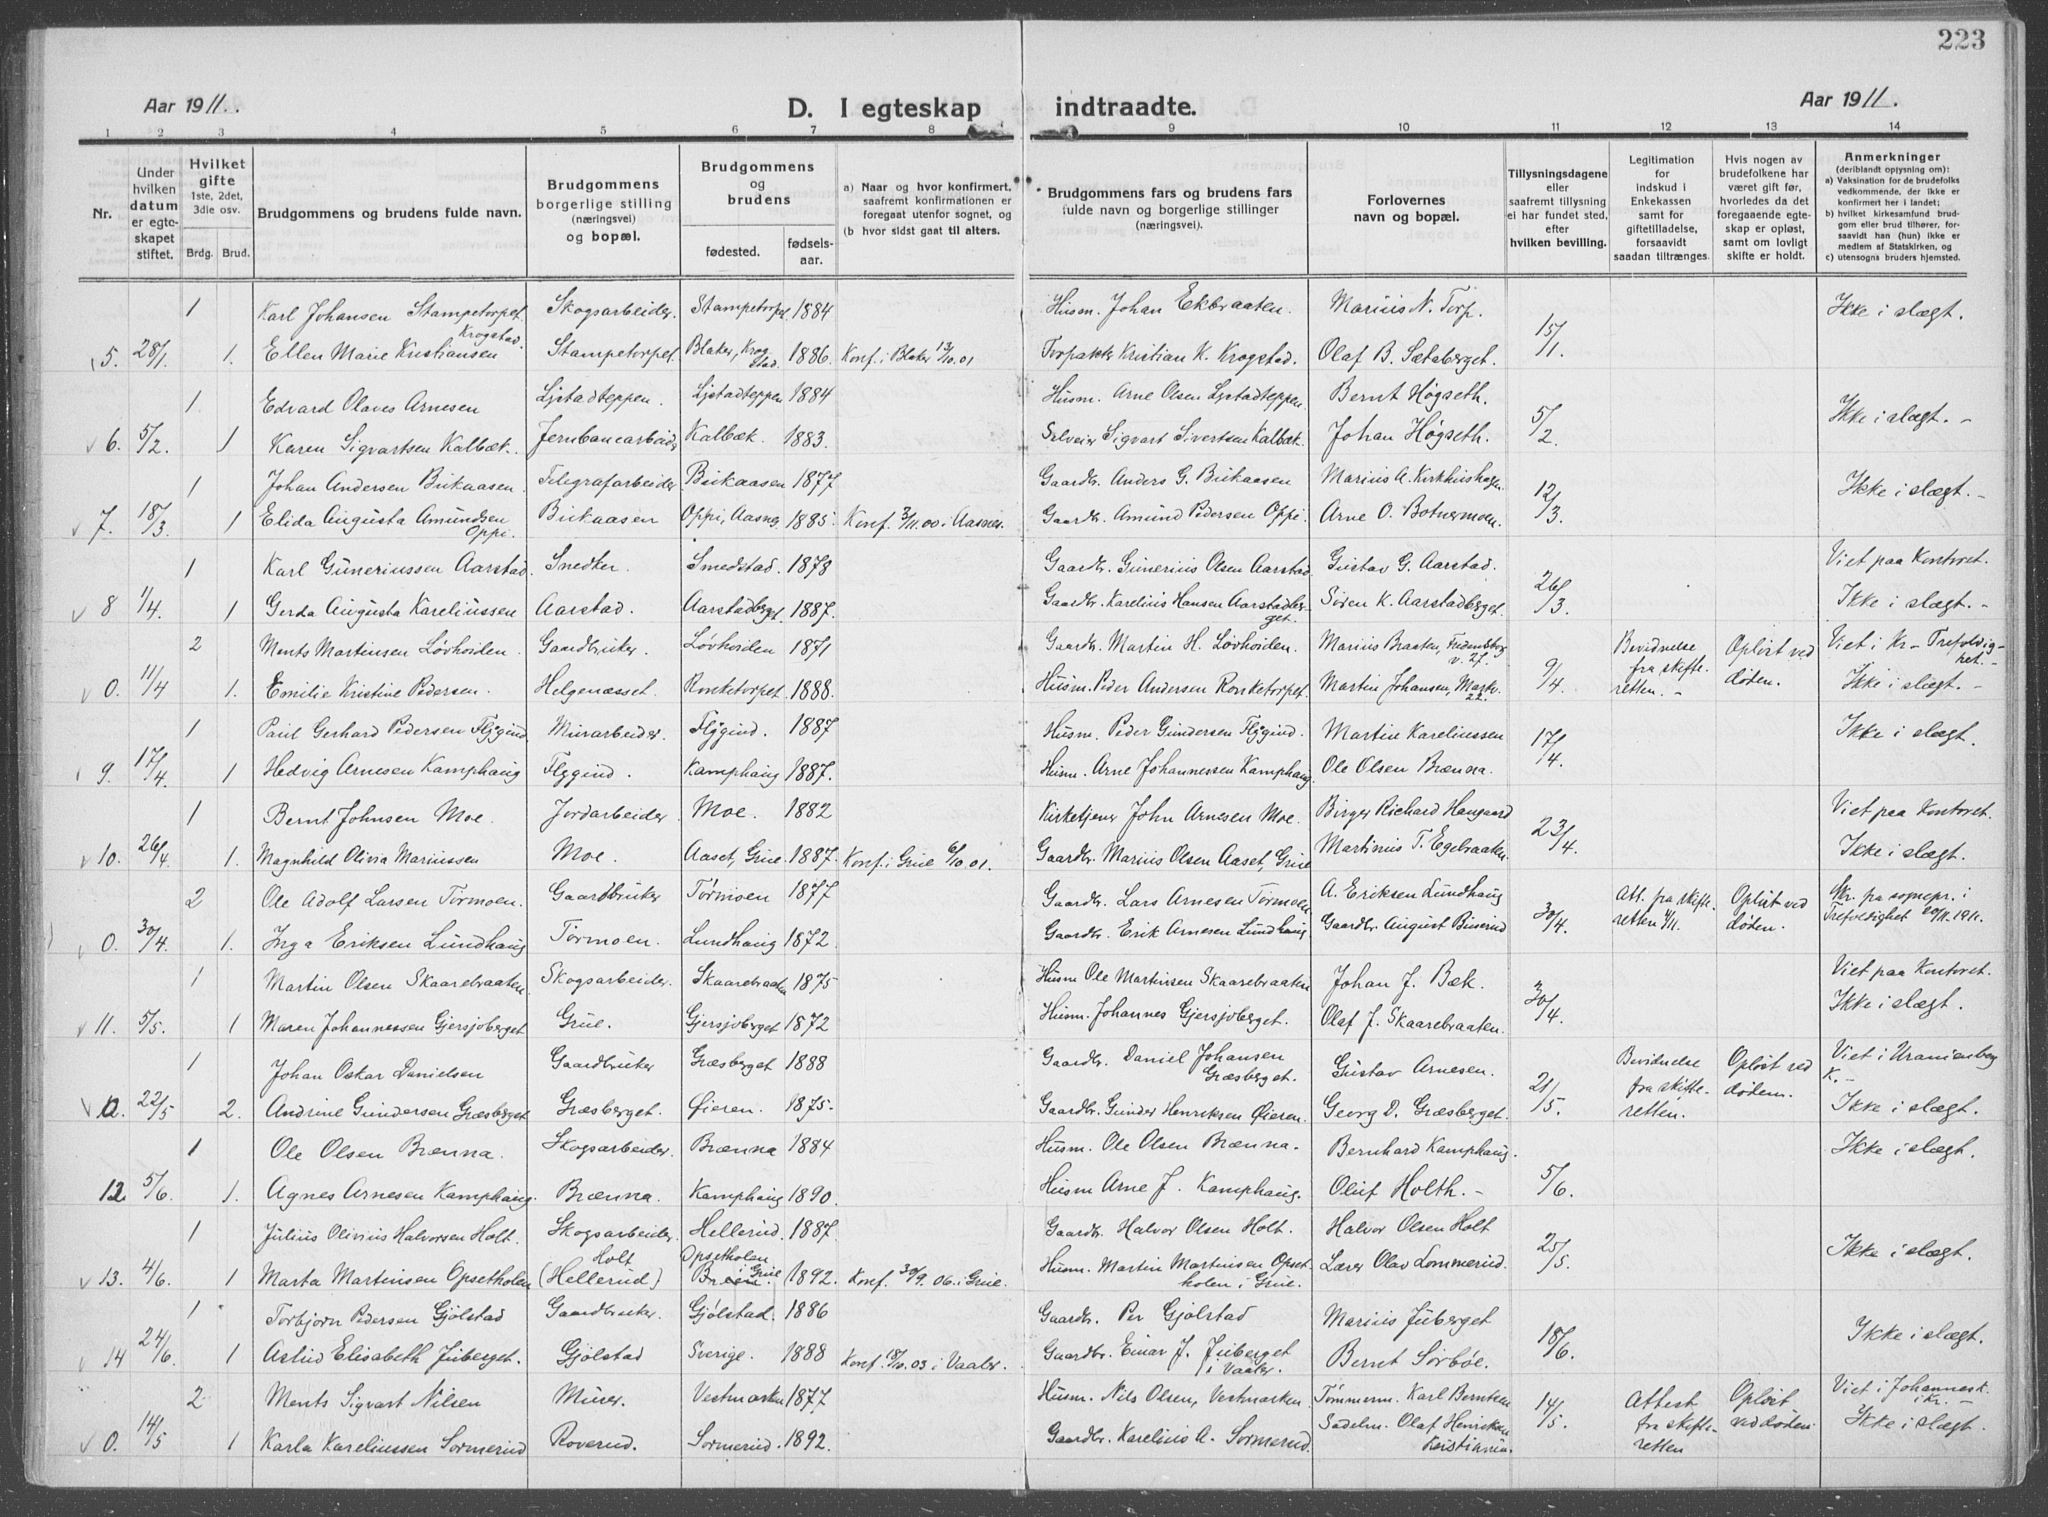 223
Aar 1911.
D. I egteskap indtraadte.
Aar 1911.
1 2 3 4 5 6 7 8 9 10 11 12 13 14
Nr.
Under hvilken datum er egteskapet stiftet.
Hvilket gifte
1ste, 2det, 3die osv.
Brdg. Brud.
Brudgommens og brudens fulde navn.
Brudgommens borgerlige stilling (næringsvei) og bopæl.
Brudgommens og brudens
fødested. fødselsaar.
a) Naar og hvor konfirmert, saafremt konfirmationen er foregaat utenfor sognet, og
(b hvor sidst gaat til alters.
Brudgommens fars og brudens fars fulde navn og borgerlige stillinger (næringsvei).
Forlovernes navn og bopæl.
Tillysningsdagene eller saafremt tillysning ei har fundet sted, efter hvilken bevilling.
Legitimation for indskud i Enkekassen samt for giftetilladelse, forsaavidt saadan tiltrænges.
Hvis nogen av brudefolkene har været gift før, hvorledes da det foregaaende egteskap er opløst, samt om lovlig skifte er holdt.
Anmerkninger (deriblandt oplysning om):
a) Vaksination for de brudefolks vedkommende, der ikke er konfirmert her i landet;
b) hvilket kirkesamfund brudgom eller brud tilhører, forsaavidt han (hun) ikke er medlem af Statskirken, og
c) utensogns bruders hjemsted.
1 Karl Johansen Stampetorpet. Skogsarbeider. Stampetorpet. 1884 Husm. Johan Ekbraaten. Marius N. Torp. Ikke i slægt.
5. 28/1 1. Ellen Marie Kristiansen Krogstad. Stampetorpet. Blaker, Krogstad. 1886. Konf. i Blaker 13/10.01 Kristian K. Krogstad. Olaf B. Sætaberget. 15/1.
1 Edvard Olaves Arnesen Ljstadteppen. Ljstadteppen 1884 Husm. Arne Olsen Ljstadteppen. Bernt Høgseth. Ikke i slægt. -
v 6. 5/2. 1 Karen Sigvartsen Kalbæk. Jernbanearbeider Kalbæk. 1883. Selveier Sigvart Sivertsen Kalbæk. Johan Høgseth. 5/2.
1 Johan Andersen Bukaasen. Telegrafarbeider Bukaasen 1877 Gaardbr. Anders G. Bukaasen Marius A. Kirkhushagen Ikke i slægt. -
v 7. 18/3. 1 Elida Augusta Amundsen Oppi. Bukaasen Oppi, Aasnes 1885. Konf. 3/11.00 i Aasnes. Gaardbr. Amund Pedersen Oppi. Arne O. Botnermoen. 12/3.
1 Karl Guneriussen Aarstad. Snedker. Smedstad. 1878 Gaardbr. Gunerius Olsen Aarstad Gustav G. Aarstad. Viet paa Kontoret.
v 8 1/4. 1 Gerda Augusta Kareliussen Aarstad. Aarstadberget. 1887. Gaardbr. Karelius Hansen Aarstadberget. Søren K. Aarstadberget. 26/3. Ikke i slægt. -
2 Ments Martinsen Løvhoiden. Gaardbruker. Løvhoiden 1871 Gaardbr. Martin H. Løvhoiden. Marius Braaten, Fredensborg v. 27. Bevidnelse fra skifteretten. - Opløst ved døden. Viet i Kr. Trefoldighet. -
v 0. 11/4 1. Emilie Kristine Pedersen. Helgenæsset. Ronketorpet 1888. Husm. Peder Andersen Ronketorpet. Martin Johansen, Markv. 22. 9/4. Ikke i slægt. -
1 Paul Gerhard Pedersen Flygind. Murarbeider. Flygind. 1887 Husm. Peder Gundersen Flygind. Martin Kareliussen Ikke i slægt.
v 9. 17/4. 1 Hedvig Arnesen Kamphaug Flygind. Kamphaug 1887. Husm. Arne Johannessen Kamphaug. Ole Olsen Brænna. 17/4
1 Bernt Johnsen Moe. Jordarbeider. Moe. 1882 Kirketjener John Arnesen Moe. Birger Richard Haugaard Viet paa Kontoret.
v 10. 26/4. 1. Magnhild Olivia Mariussen Moe. Aaset, Grue. 1887. Konf. i Grue 6/10.01. Gaardbr. Marius Olsen Aaset, Grue Martinius T. Egebraaten. 23/4. Ikke i slægt.
2 Ole Adolf Larsen Tormoen. Gaardbruker Tørmoen 1877 Gaardbr. Lars Arnesen Tormoen. A. Eriksen Lundhaug Att. fra skifteretten 4/11. Opløst ved døden. Skr. fra sognepr. i Trefoldighet 20/11.1911.
v 0. 30/4. 1. Inga Eriksen Lundhaug Tørmoen. Lundhaug 1872. Gaardbr. Erik Arnesen Lundhaug Gaardbr. August Buserud 30/4.
1 Martin Olsen Skaarebraaten. Skogsarbeider. Skaarebraaten 1875 Husm Ole Martinsen Skaarebraaten Johan J. Bæk. Viet paa Kontoret.
v 11. 5/5. 1 Maren Johannessen Gjersjoberget Grue. Gjersjoberget 1872 Husm. Johannes Gjersjoberget. Olaf J. Skaarebraaten. 30/4. Ikke i slægt.
1 Johan Oskar Danielsen Gaardbruker Græsberget 1888 Gaardbr. Daniel Johansen Græsberget. Gustav Arnesen. Bevidnelse fra skifteretten. Opløst ved døden. Viet i Uranienborg K. -
v 0. 22/5 2. Andrine Gundersen Græsberget Græsberget. Øieren. 1875. Gaardbr. Gunder Henriksen Øieren. Georg D. Græsberget. 21/5. Ikke i slægt.
1 Ole Olsen Brænna. Skogsarbeider. Brænna 1884 Husm. Ole Olsen Brænna. Bernhard Kamphaug. Ikke i slægt.
12 5/6. 1. Agnes Arnesen Kamphaug. Brænna. Kamphaug 1890. Husm Arne J. Kamphaug. Oluf Holth. - 5/6.
1 Julius Olivius Halvorsen Holt. Skogsarbeider. Hellerud. 1887. Gaardbr. Halvor Olsen Holt. Halvor Olsen Holt Ikke i slægt.
v 13. 4/6. 1 Marta Martinsen Opsetholen Holt (Hellerud) Opsetholen i Grue. 1892. Konf. 30/9.06 i Grue. Husm. Martin Martinsen Opsetholen i Grue. Lærer Olav Lommerud. 25/5.
1 Torbjørn Pedersen Gjølstad Gaardbruker. Gjølstad. 1886 Gaardbr. Per Gjølstad Marius Juberget Ikke i slægt.
v 14 24/6. 1 Astrid Elisabeth Juberget. Gjølstad Sverige. 1888 Konf. 18/10.03 i Vaaler. Gaardbr. Einar J. Juberget i Vaaler. Bernt Sorbøe. 18/6.
2 Ments Sigvart Nilsen Murer. Vestmarken 1877 Husm. Nils Olsen, Vestmarken Tømmerm. Karl Berntsen Attest fra skifteretten Opløst ved døden. Viet i Johannesk. i Kr. -
v 0. 14/5 1 Karla Kareliussen Sormerud Roverud. Sormerud. 1892. Gaardbr. Karelius A. Sormerud. Sadelm. Olaf Henriksen Kristiania. 14/5. Ikke i slægt.